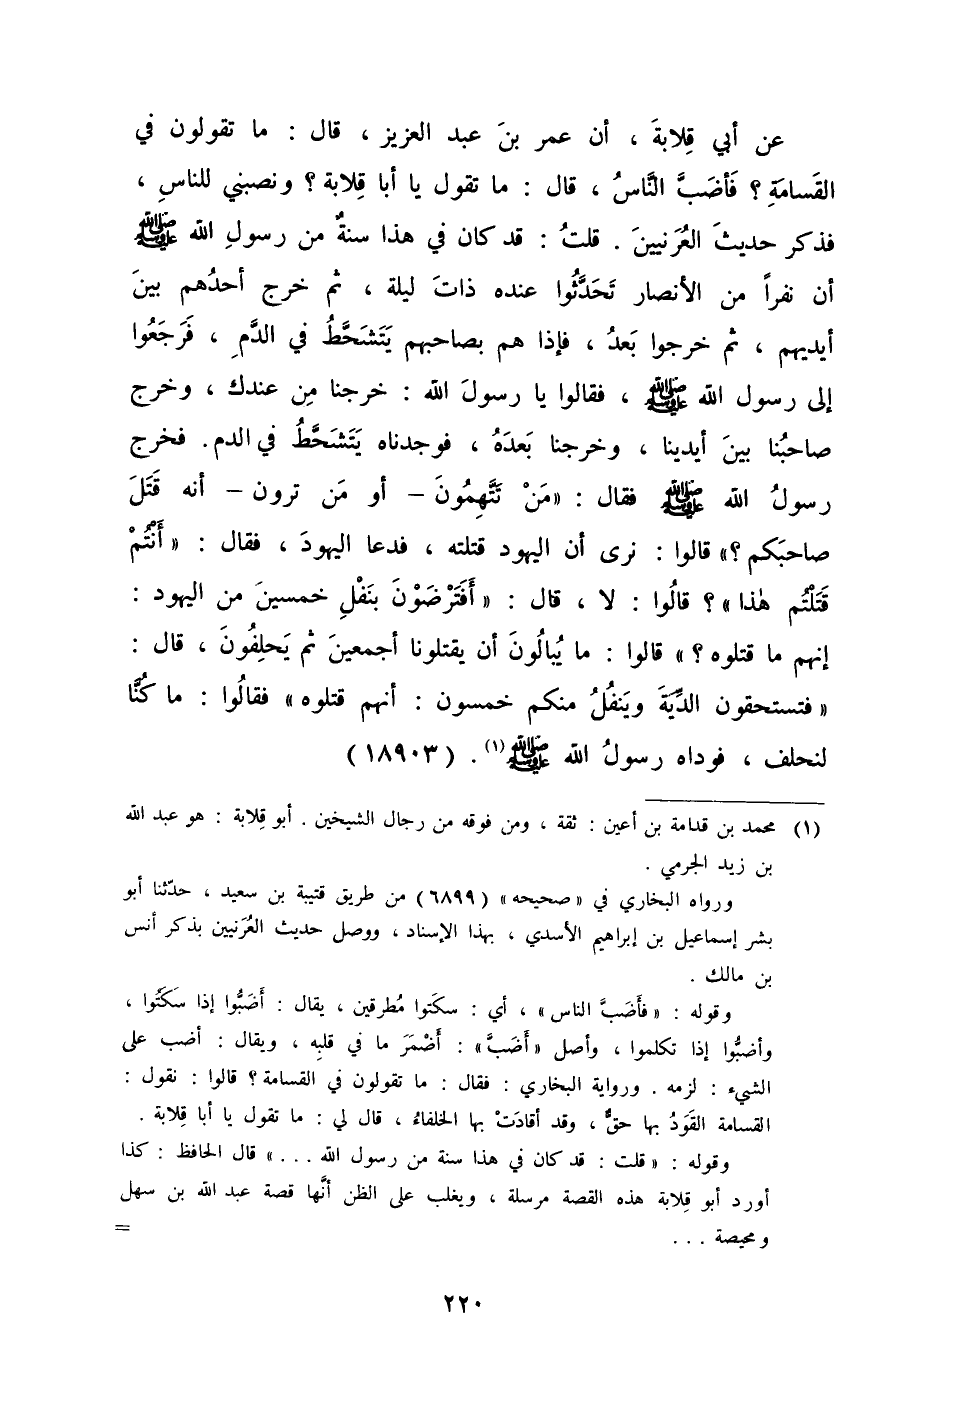 عن أبي قِلابةَ ، أن عمر بنَ عبد العزيز ، قال : ما تقولون في
القَسامَةِ ؟ فَأضَبَّ النَّاسُ ، قال : ما تقول يا أبا قِلابة ؟ ونصبني للناسِ ،
فذكر حديثَ العُرَنيينَ . قلتُ : قد كان في هذا سنةٌ من رسولِ الله ﷺ
أن نفراً من الأنصار تَحَدَّثُوا عنده ذاتَ ليلة ، ثم خرج أحدُهم بينَ
أيديهم ، ثم خرجوا بَعدُ ، فإذا هم بصاحبهم يَتَشَحَّطُ في الدَّمِ ، فَرَجَعُوا
إلى رسول الله ﷺ ، فقالوا يا رسولَ الله : خرجنا مِن عندك ، وخرج
صاحبُنا بينَ أيدينا ، وخرجنا بَعدَهُ ، فوجدناه يَتَشَحَّطُ في الدم. فخرج
رسولُ الله ﷺ فقال : «مَنْ تَتَّهِمُونَ – أو مَن ترون – أنه قَتَلَ
صاحبَكم ؟» قالوا : نرى أن اليهود قتلته ، فدعا اليهودَ ، فقال : « أَنْتُمْ
قَتَلْتُم هٰذا » ؟ قالُوا : لا ، قال : « أَفَتَرْضَوْنَ بنَفْلِ خمسينَ من اليهود :
إنهم ما قتلوه ؟ » قالوا : ما يُبالُونَ أن يقتلونا أجمعينَ ثم يَحلِفُونَ ، قال :
« فتستحقون الدِّيَةَ ويَنفُلُ منكم خمسون : أنهم قتلوه » فقالُوا : ما كُنَّا
لنحلف ، فوداه رسولُ الله ﷺ (١) . ( ١٨٩٠٣ )
(١) محمد بن قدامة بن أعين : ثقة ، ومن فوقه من رجال الشيخين . أبو قِلابة : هو عبد الله
بن زيد الجرمي .
ورواه البخاري في « صحيحه » (٦٨٩٩) من طريق قتيبة بن سعيد ، حدّثنا أبو
بشر إسماعيل بن إبراهيم الأسدي ، بهذا الإسناد ، ووصل حديث العُرَنيين بذكر أنس
بن مالك .
وقوله : « فأَضَبَّ الناس » ، أي : سكَتوا مُطرقين ، يقال : أَضَبُّوا إذا سَكَتُوا ،
وأضبُّوا إذا تكلموا ، وأصل « أَضَبَّ » : أَضْمَرَ ما في قلبِه ، ويقال : أضب على
الشيء : لزمه . ورواية البخاري : فقال : ما تقولون في القسامة ؟ قالوا : نقول :
القسامة القَوَدُ بها حقٌّ ، وقد أقادَتْ بها الخلفاءُ ، قال لي : ما تقول يا أبا قِلابة .
وقوله : « قلت : قد كان في هذا سنة من رسول الله . . . » قال الحافظ : كذا
أورد أبو قِلابة هذه القصة مرسلة ، ويغلب على الظن أنَّها قصة عبد الله بن سهل
ومحيصة . . .
=
٢٢٠